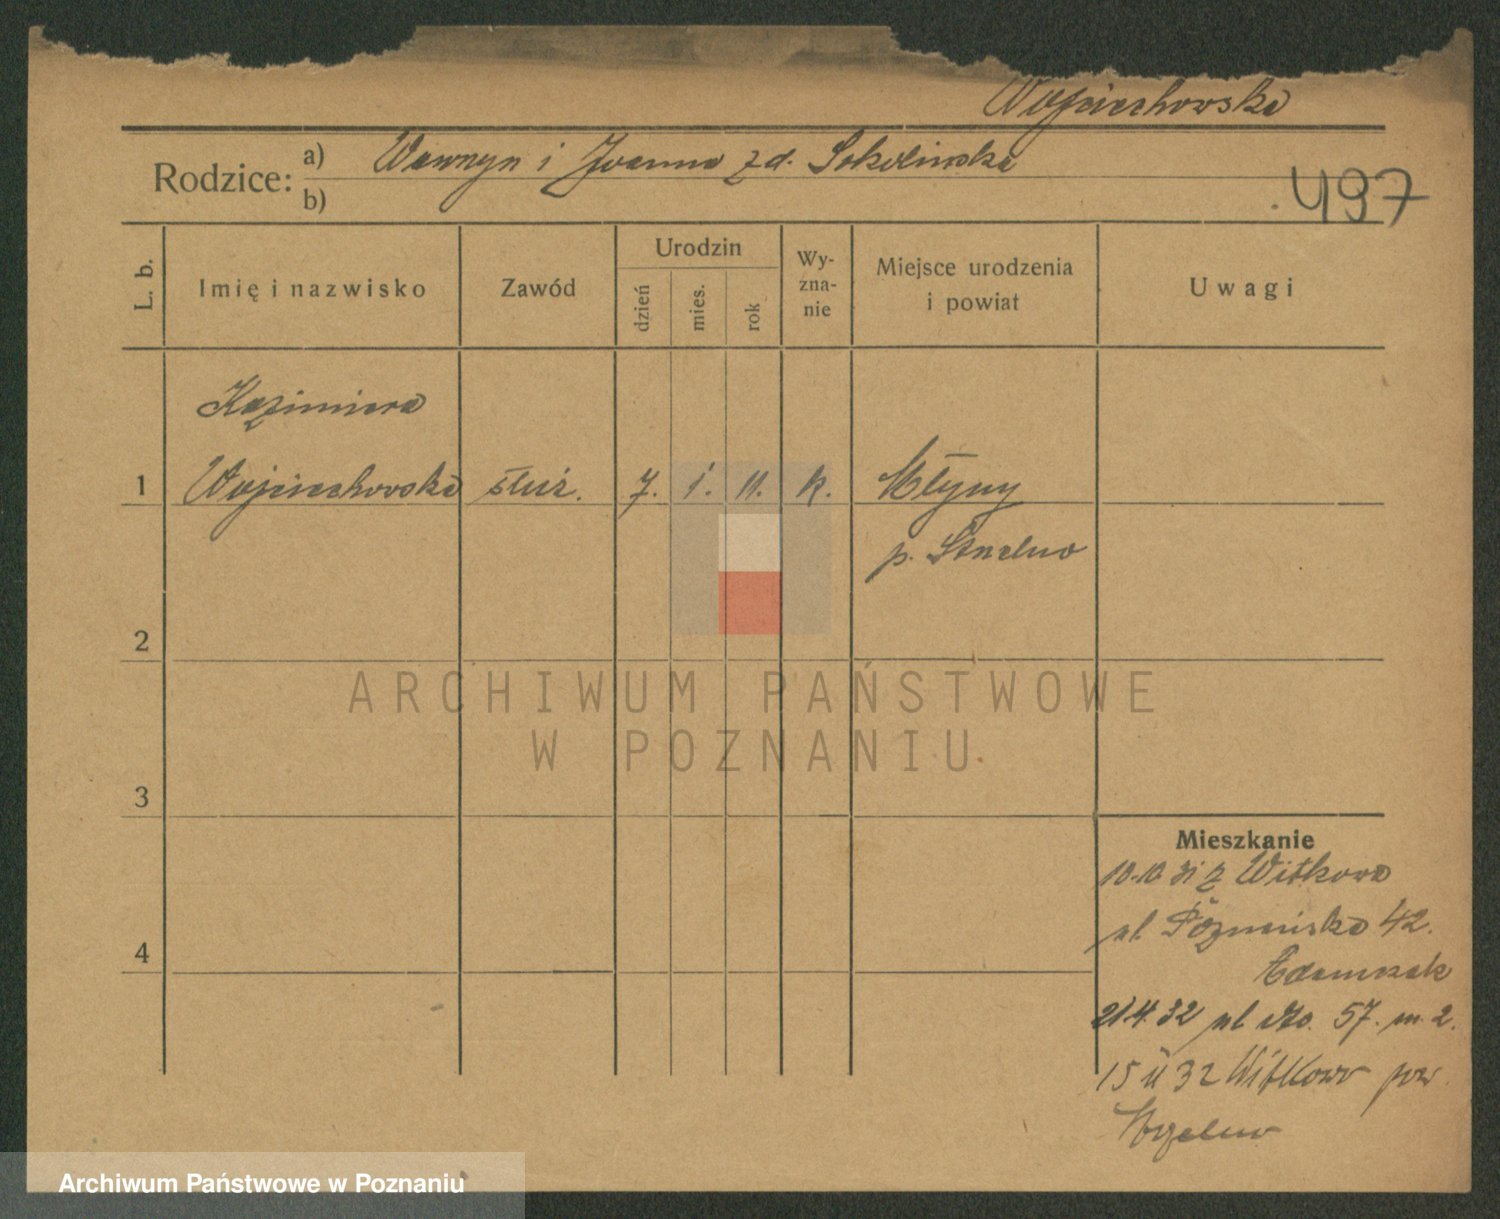 Wojciechowska
Rodzice: a) Wawrzyn i Joanna z d. Sokolinska
b)
497
L. b.
Imię i nazwisko
Zawód
Urodzin
dzień
mies.
rok
Wy-
zna-
nie
Miejsce urodzenia
i powiat
Uwagi
Kazimiera
1 Wojciechowska służ. 7. 1. 11. k. Młyny
p. Strzelno
2
ARCHIWUM PAŃSTWOWE
W POZNANIU
3
Mieszkanie
10.10 31 z Witkowa
ul. Poznańska 42.
4
Adamczak
21.4.32 ul 57. m. 2.
15 32 Witkowo pow.
Archiwum Państwowe w Poznaniu